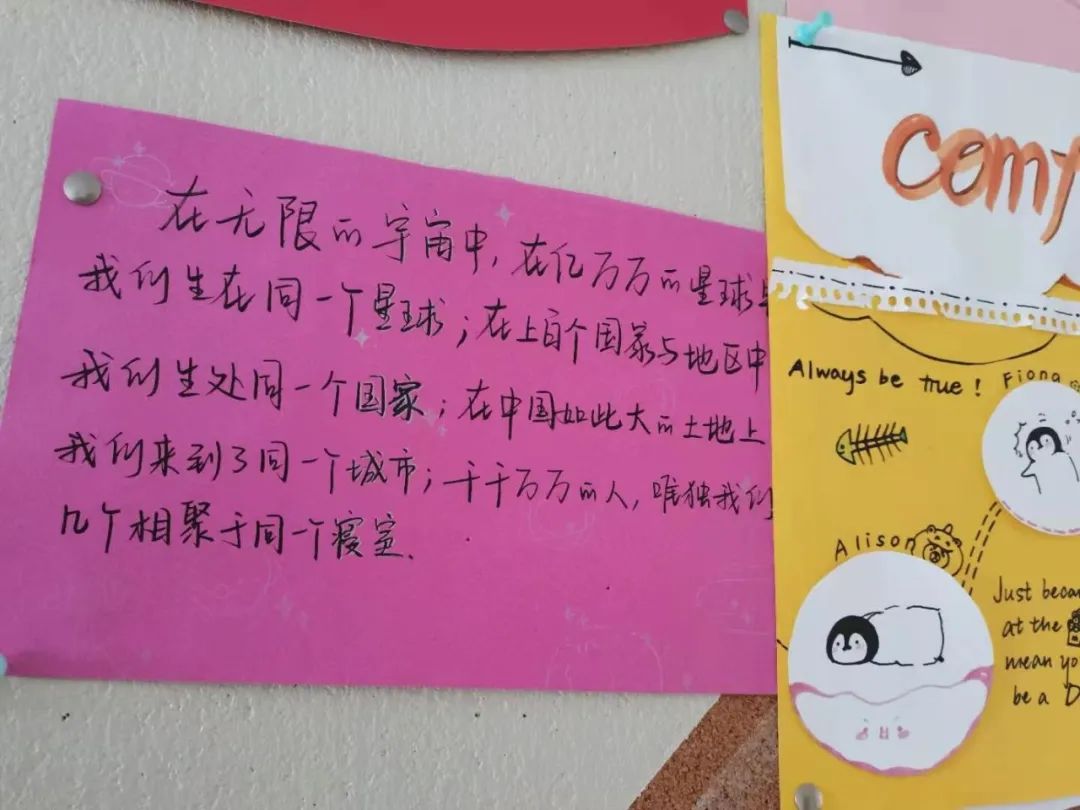 在无限的宇宙中，在亿万万的星球上
我们生在同一个星球；在上百个国家与地区中
我们生处同一个国家；在中国如此大的土地上
我们来到了同一个城市；千千万万的人，唯独我们
几个相聚于同一个寝室.
Always be true! Fiona
Alison
Just
at the
mean you
be a